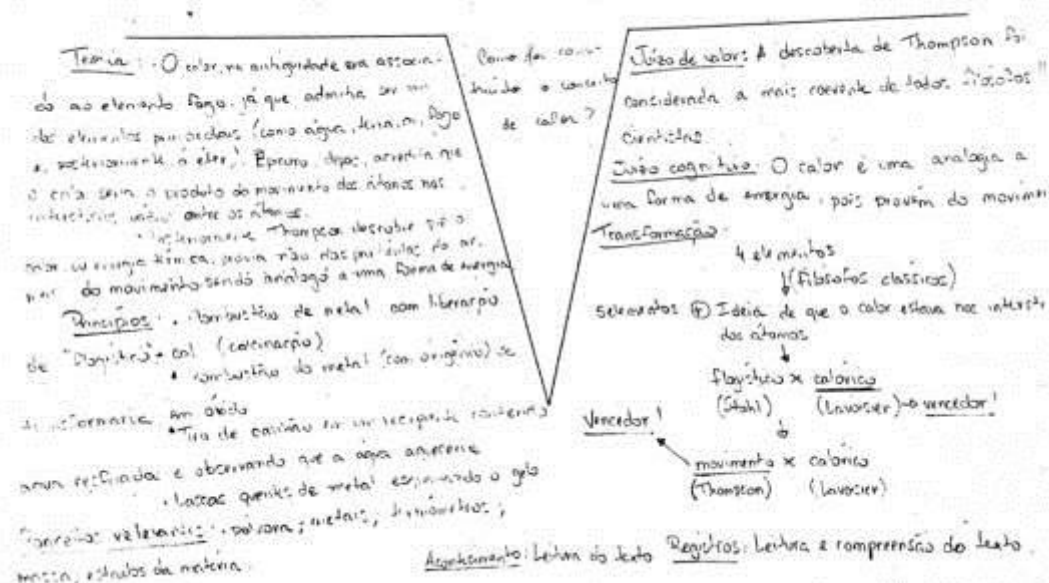 Teoria: O calor, na antiguidade era associa-
do ao elemento fogo, já que
dos elementos primordiais (como água, terra, ar, fogo
e, posteriormente, o éter). Epicuro, depois, que
o calor seria o produto do movimento dos átomos nos
entre os átomos.
Posteriormente Thompson descobre que o
calor, ou energia térmica, provia não das partículas do ar,
mas do movimento sendo análogo a uma forma de energia
Princípios: • combustão de metal com liberação
de "flogístico" + cal (calcinação)
• combustão do metal (com oxigênio) se
transformaria em óxido
• Tiro de canhão em um recipiente contendo
água resfriada e observando que a água aquecia
• Lascas quentes de metal o gelo
Conceitos relevantes: pólvora; metais; termômetros;
massa, estados da matéria.
Como foi cons-
truído o conceito
de calor?
Juízo de valor: A descoberta de Thompson foi
considerada a mais coerente de todos filósofos
cientistas.
Juízo cognitivo: O calor é uma analogia a
uma forma de energia, pois provém do movimen
Transformação:
4 elementos
↓ (filósofos clássicos)
5 elementos ⊕ Ideia de que o calor estava nos interstí
dos átomos
↓
flogístico x calórico
(Stahl) (Lavoisier) → vencedor!
↓
Vencedor!
movimento x calórico
(Thompson) (Lavoisier)
Acontecimento: Leitura do texto Registros: Leitura e compreensão do texto.